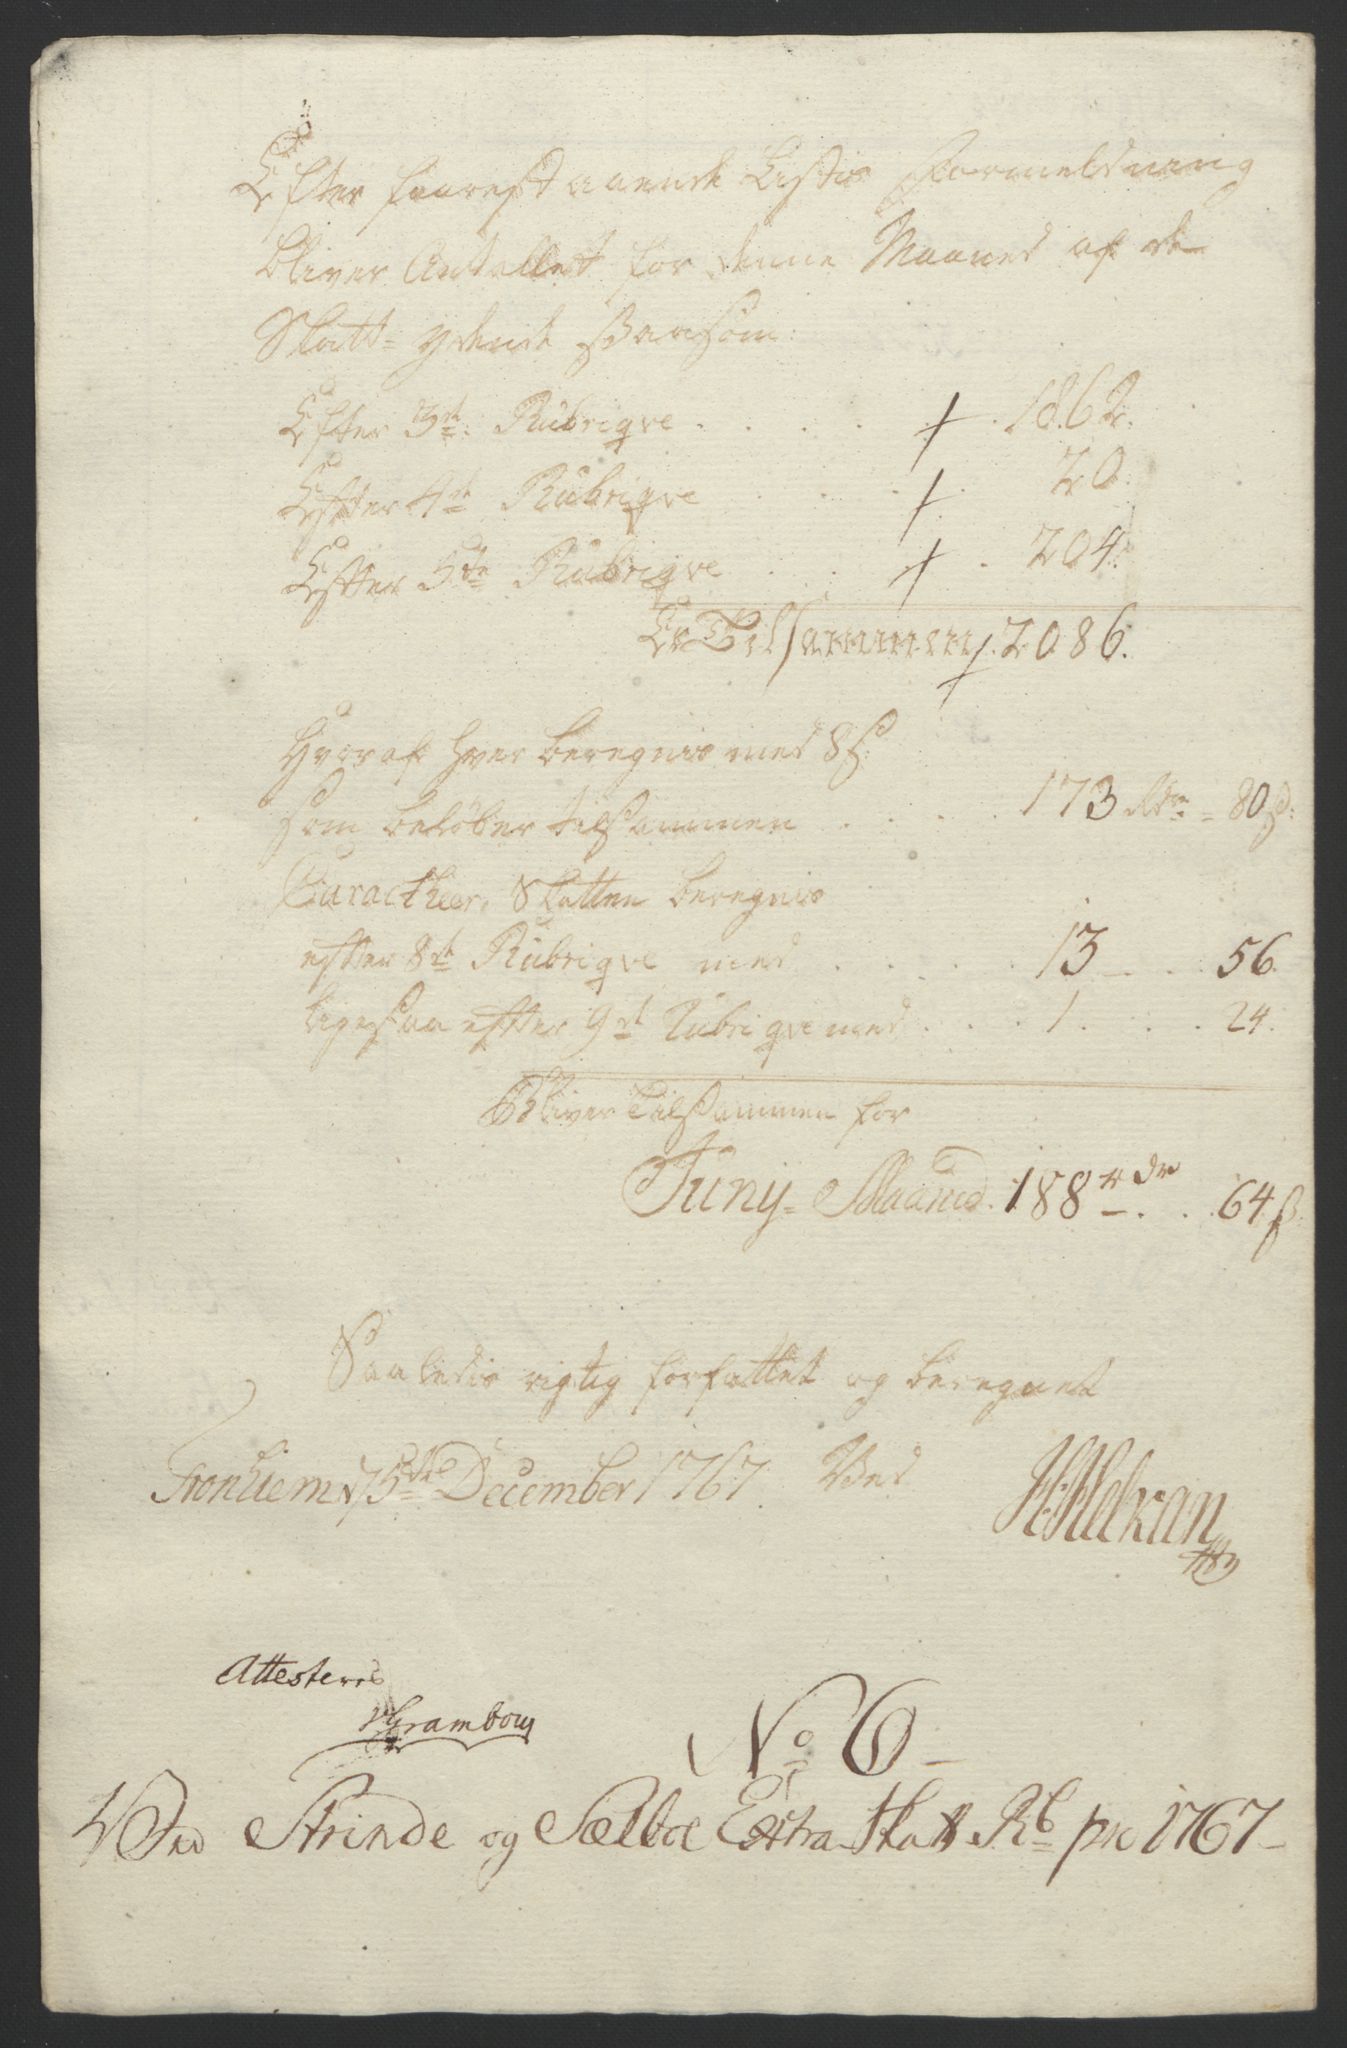 Efter foorestaaende Listes Formeldning
bliver Antallet for denne Maaned af de
Skatt-ydende saasom:
Efter 3de Rubriqve . . . . 1862.
Efter 4de Rubriqve . . . . 20.
Efter 5te Rubriqve . . . . 204.
Er Tilsammen 2086.
Hvoraf hver beregnes med 8 s:
som beløber tilsammen . . . . 173 rdr = 80 s:
Caractheer Skatten beregnes
efter 8de Rubriqve med . . . . 13 – . . 56.
ligesaa efter 9de Rubriqve med . . . 1. . . . 24.
Bliver Tilsammen for
Juny = Maaned. 188 rdr – . . 64 s.
Saaledes rigtig forfattet og beregnet
Tronhiem d 5de December 1767. Ved
Attesteres
No 6
Ved Strinde og Sælboe Extra Skatt Rb pro 1767